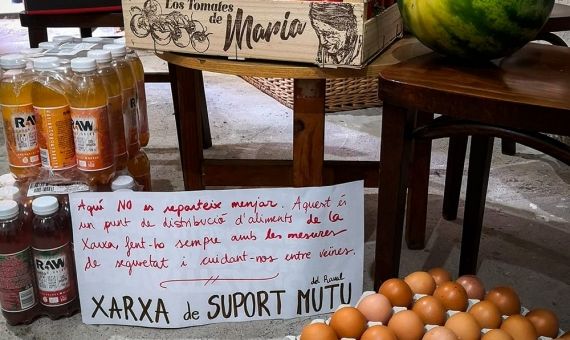 Los Tomates
de
Maria
RAW
RAW
RAW
RAW
Aquí NO es reparteix menjar. Aquest és
un punt de distribució d'aliments de la
Xarxa, fent-ho sempre amb les mesures
de seguretat i cuidant-nos entre veïnes.
del Raval
XARXA de SUPORT MUTU